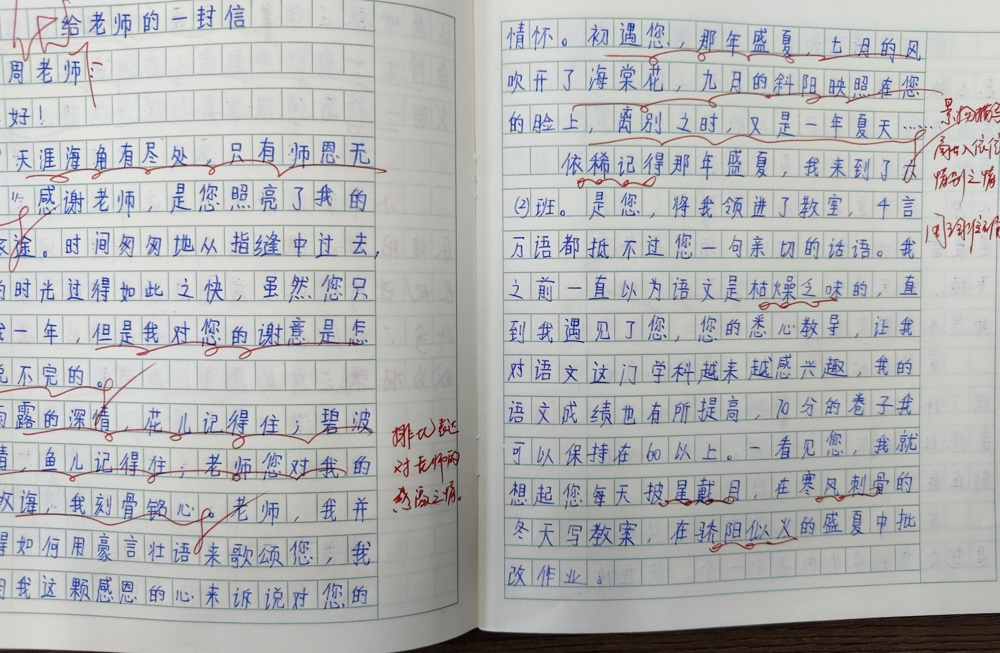 给老师的一封信
周老师：
好！
"天涯海角有尽处，只有师恩无
"感谢老师，是您照亮了我的
途。时间匆匆地从指缝中过去，
时光过得如此之快，虽然您只
我一年，但是我对您的谢意是怎
说不完的。
雨露的深情，花儿记得住；碧波
情，鱼儿记得住；老师您对我的
教海，我刻骨铭心。老师，我并
得如何用豪言壮语来歌颂您，我
用我这颗感恩的心来诉说对您的
排比表达
对老师的
感激之情。
情怀。初遇您，那年盛夏，七月的风
吹开了海棠花，九月的斜阳映照在您
的脸上，离别之时，又是一年夏天……
依稀记得那年盛夏，我来到了六
(2)班。是您，将我领进了教室，千言
万语都抵不过您一句亲切的话语。我
之前一直以为语文是枯燥乏味的，直
到我遇见了您，您的悉心教导，让我
对语文这门学科越来越感兴趣，我的
语文成绩也有所提高，70分的卷子我
可以保持在60以上。一看见您，我就
想起您每天披星戴月，在寒风刺骨的
冬天写教案，在骄阳似火的盛夏中批
改作业。
情别之情